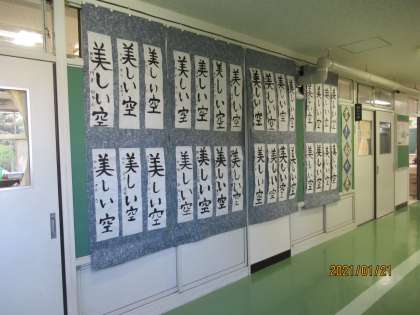 美しい空
美しい空
美しい空
美しい空
美しい空
美しい空
美しい空
美しい空
美しい空
美しい空
美しい空
美しい空
美しい空
美しい空
美しい空
美しい空
美しい空
美しい空
美しい空
美しい空
美しい空
美しい空
美しい空
美しい空
美しい空
美しい空
美しい空
美しい空
美しい空
美しい空
2021/01/21